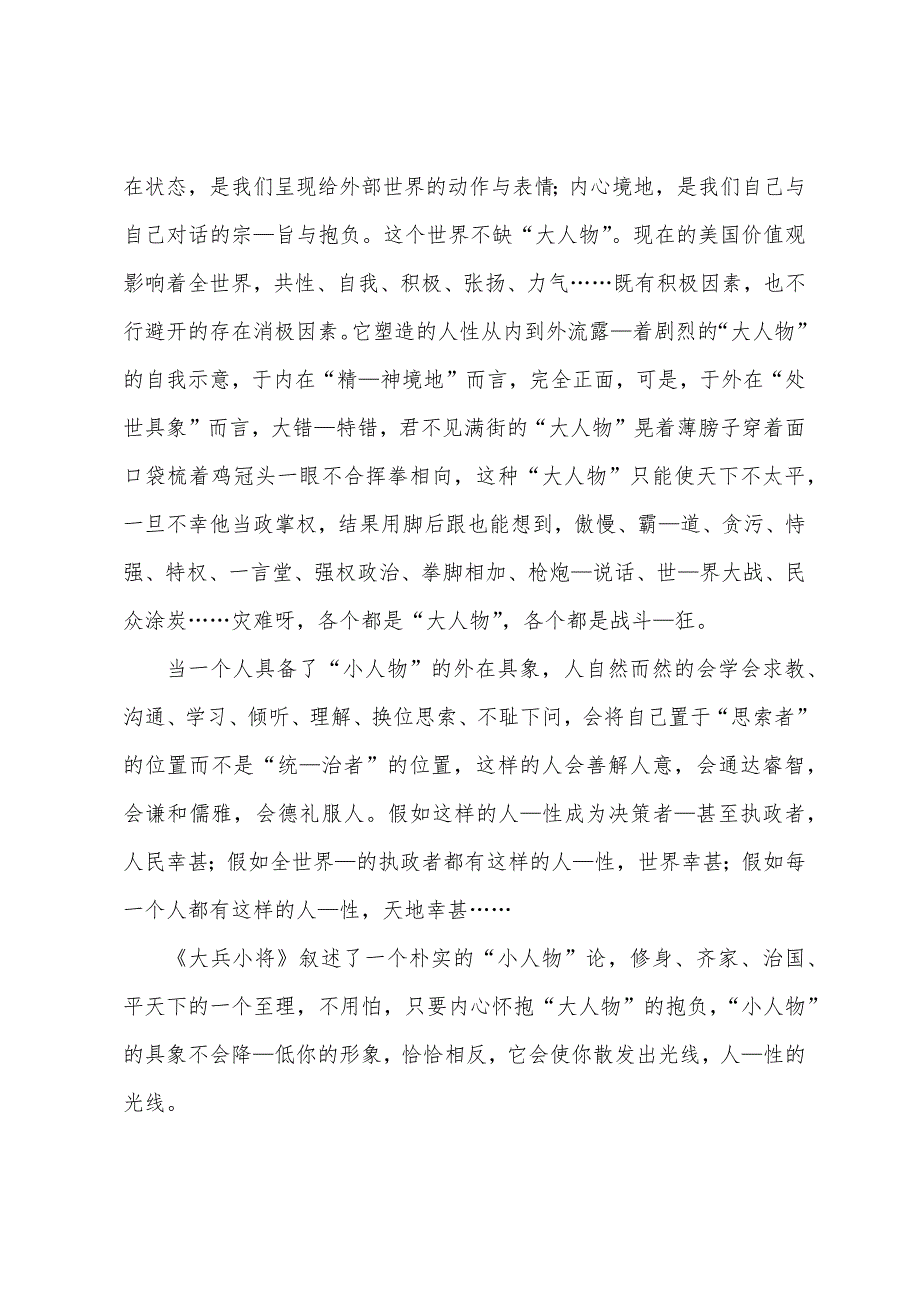 在状态，是我们呈现给外部世界的动作与表情；内心境地，是我们自己与
自己对话的宗—旨与抱负。这个世界不缺“大人物”。现在的美国价值观
影响着全世界，共性、自我、积极、张扬、力气……既有积极因素，也不
行避开的存在消极因素。它塑造的人性从内到外流露—着剧烈的“大人物”
的自我示意，于内在“精—神境地”而言，完全正面，可是，于外在“处
世具象”而言，大错—特错，君不见满街的“大人物”晃着薄膀子穿着面
口袋梳着鸡冠头一眼不合挥拳相向，这种“大人物”只能使天下不太平，
一旦不幸他当政掌权，结果用脚后跟也能想到，傲慢、霸—道、贪污、恃
强、特权、一言堂、强权政治、拳脚相加、枪炮—说话、世—界大战、民
众涂炭……灾难呀，各个都是“大人物”，各个都是战斗—狂。
当一个人具备了“小人物”的外在具象，人自然而然的会学会求教、
沟通、学习、倾听、理解、换位思索、不耻下问，会将自己置于“思索者”
的位置而不是“统—治者”的位置，这样的人会善解人意，会通达睿智，
会谦和儒雅，会德礼服人。假如这样的人—性成为决策者—甚至执政者，
人民幸甚；假如全世界—的执政者都有这样的人—性，世界幸甚；假如每
一个人都有这样的人—性，天地幸甚……
《大兵小将》叙述了一个朴实的“小人物”论，修身、齐家、治国、
平天下的一个至理，不用怕，只要内心怀抱“大人物”的抱负，“小人物”
的具象不会降—低你的形象，恰恰相反，它会使你散发出光线，人—性的
光线。